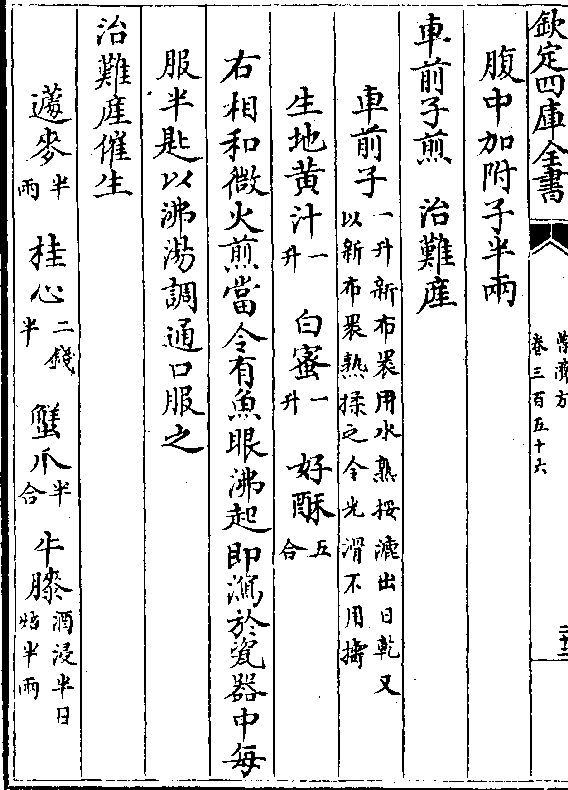 欽定四庫全書
普濟方
卷三百五十六
腹中加附子半兩
車前子煎 治難產
車前子一升新布裹用水熟挼漉出日乾又以新布裹熟揉之令光滑不用擣
生地黄汁一升 白蜜一升 好酥五合
右相和微火煎當令有魚眼沸起即瀉於瓷器中每
服半匙以沸湯調通口服之
治難產催生
蘧麥半兩 桂心二錢半 蟹爪半合 牛膝酒浸半日焙半兩